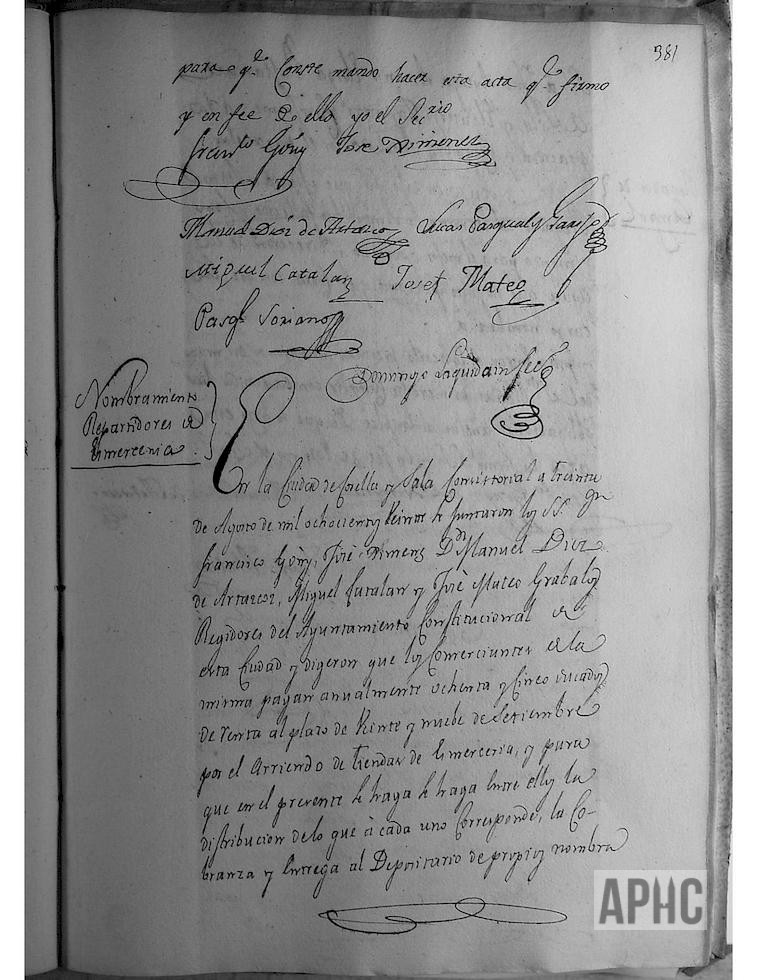 381
para q.e Conste mando hacer esta acta q.e firmo
y en fee de ello yo el Sec.rio
Fran.co Goñy Jose Ximenez
Manuel Diez de Artazcoz Lucas Pasqual y
Miguel Catalan Josef Mateo
Pasq.l Soriano
Domingo Laquidain Sec.o
Nombramiento
Repartidores de
Emerceria
En la Ciudad de Corella y Sala Consistorial a treinta
de Agosto de mil ochocientos Veinte se Juntaron los SS.
Francisco Goñy, José Ximenez D.n Manuel Diez
de Artazcoz, Miguel Catalan y José Mateo Grabalos
Regidores del Ayuntamiento Constitucional de
esta Ciudad y digeron que los Comerciantes de la
misma pagan anualmente ochenta y Cinco ducados
de renta al plazo de Veinte y nuebe de Setiembre
por el Arriendo de tiendas de Emerceria, y para
que en el presente se haga se haga Entre ellos la
distribucion de lo que á cada uno Corresponde, la Co-
branza y Entrega al Depositario de propios nombra
APHC